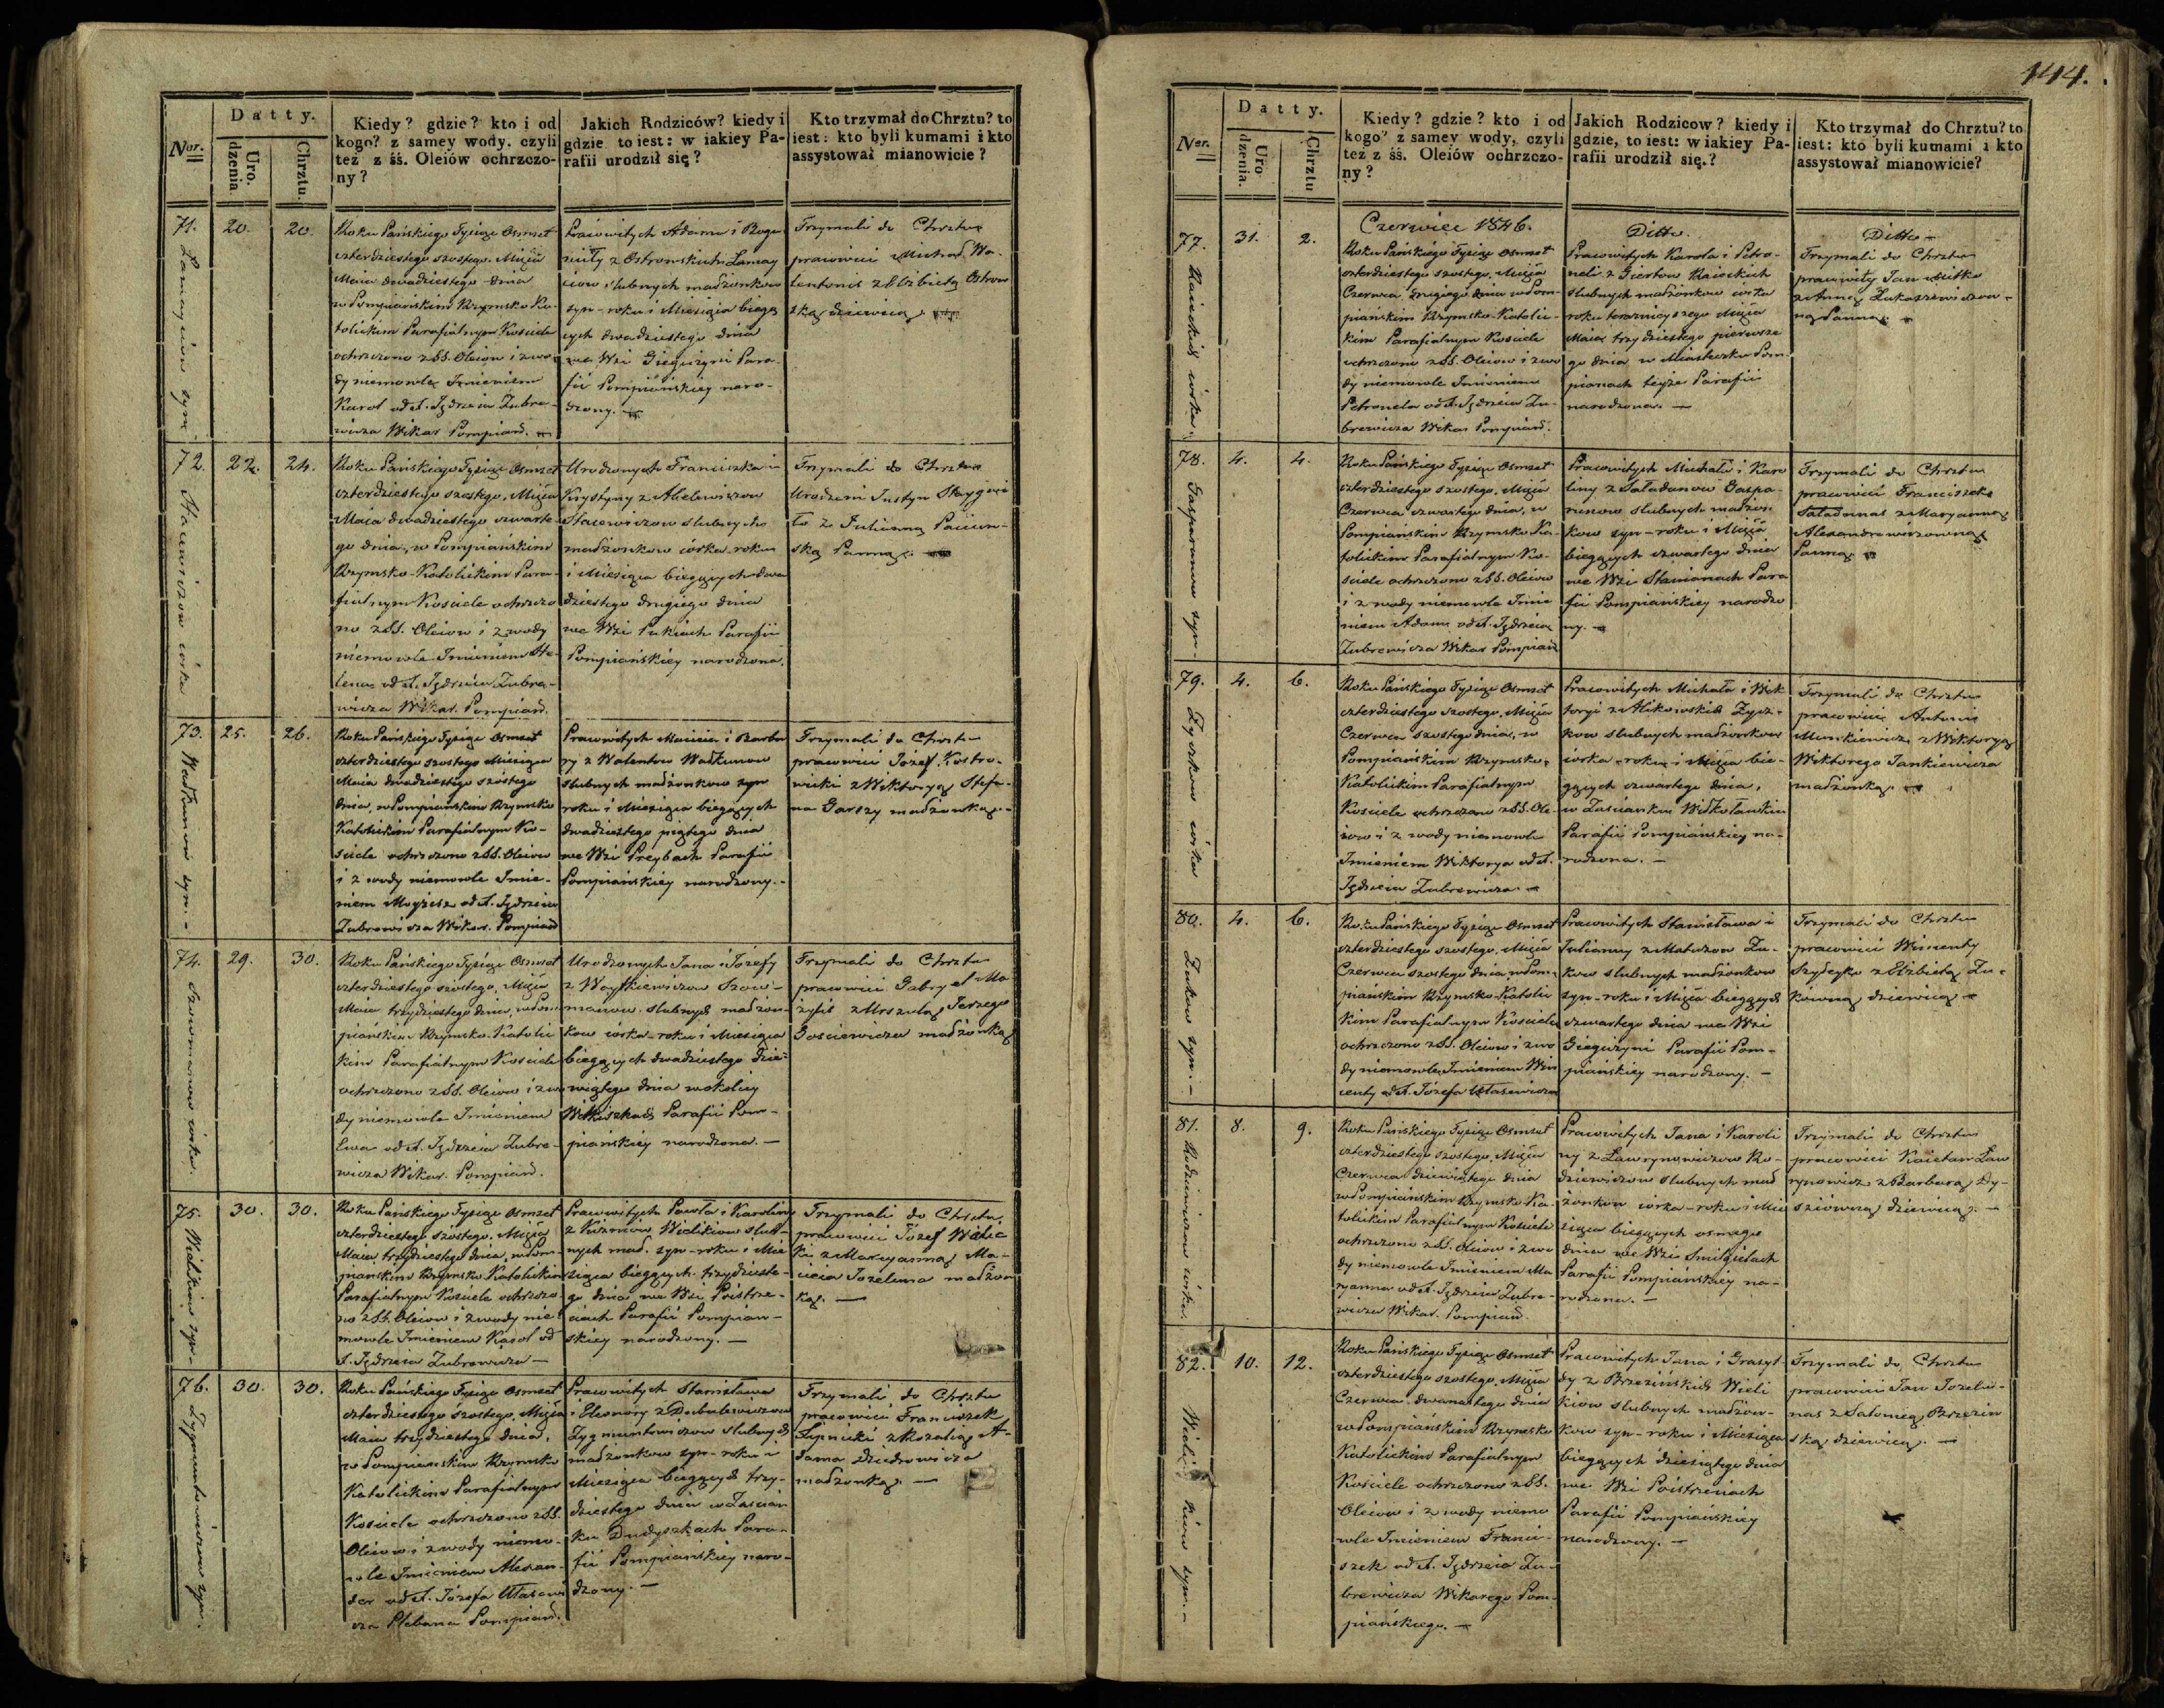 Datty.
Ner.
Uro.
dzenia.
Chrztu.
Kiedy? gdzie? kto i od
kogo? z samey wody. czyli
też z śś. Oleiów ochrzczo-
ny?
Jakich Rodziców? kiedy i
gdzie to iest: w iakiey Pa-
rafii urodził się?
Kto trzymał do Chrztu? to
iest: kto byli kumami i kto
assystował mianowicie?
71.
20.
20.
Roku Pańskiego Tysiąc Osmset
czterdziestego szostego. Msca
Maia dwadziestego dnia
w Pompiańskim Rzymsko Ka-
tolickim Parafialnym Kosciele
ochrzczono z SS. Oleiow i z wo-
dy niemowle Imieniem
Karol od X. Jędrzeia Zubre-
wicza Wikar. Pompiań.
Pracowitych Adama i Bogu-
miły z Ostrowskich
slubnych małżonkow
syn roku i Miesiąca bieżą
cych dwadziestego dnia
we Wsi Giegużyni Para-
fii Pompiańskiey naro-
dzony.
Trzymali do Chrztu
pracowici Michał Wa-
lentonis z Elżbietą Ostrow
ską dziewicą
72.
22.
24.
Stacewiczow córka
Roku Pańskiego Tysiąc Osmset
czterdziestego szostego. Msca
Maia dwadziestego czwarte-
go dnia, w Pompiańskim
Rzymsko-Katolickim Para-
fialnym Kosciele ochrzczo
no z SS. Oleiow i z wody
niemowle Imieniem He-
lena od X. Jędrzeia Zubre-
wicza Wikar. Pompiań.
Urodzonych Franciszka i
Krystyny z Abelewiczow
Stacewiczow slubnych
małżonkow córka roku
i Miesiąca bieżących dwa
dziestego drugiego dnia
we Wsi Pukiach Parafii
Pompiańskiey narodzona.
Trzymali do Chrztu
Urodzeni Justyn
to z Julianną
ską Panną.
73.
25.
26.
Roku Pańskiego Tysiąc Osmset
czterdziestego szostego Miesiąca
Maia dwadziestego szostego
dnia, w Pompiańskim Rzymsko
Katolickim Parafialnym Ko-
sciele ochrzczono z SS. Oleiow
i z wody niemowle Imie-
niem Moyżesz od X. Jędrzeia
Zubrewicza Wikar. Pompiań
Pracowitych Macieia i Barba
ry z Walentow Wadkunow
slubnych małżonkow syn
roku i Miesiąca bieżących
dwadziestego piątego dnia
we Wsi Preybach Parafii
Pompiańskiey narodzony.
Trzymali do Chrztu
pracowici Józef Kostro-
wicki z Wiktoryą Stefa-
na małżonką.
74.
29.
30.
Szowmanow córka.
Roku Pańskiego Tysiąc Osmset
czterdziestego szostego, Msca
Maia trzydziestego dnia, w Pom
piańskim Rzymsko Katolic
kim Parafialnym Kosciele
ochrzczono z SS. Oleiow i z wo
dy niemowle Imieniem
Ewa od X. Jędrzeia Zubre-
wicza Wikar. Pompiań.
Urodzonych Jana i Józefy
z Woytkiewiczow Szow-
manow slubnych małżon-
kow córka roku i Miesiąca
bieżących dwadziestego dzie-
wiątego dnia w okolicy
Parafii Pom-
piańskiey narodzona.
Trzymali do Chrztu
pracowici Gabryel
z Urszulą Jerzego
Gosciewicza małżonką
75.
30.
30.
Wielikow syn
Roku Pańskiego Tysiąc Osmset
czterdziestego szostego. Msca
Maia trzydziestego dnia, w Pom-
piańskim Rzymsko Katolickim
Parafialnym Kosciele ochrzczo-
no z SS. Oleiow i z wody nie-
mowle Imieniem Karol od
X. Jędrzeia Zubrewicza
Pracowitych Pawła i Karoliny
z Wielikow slub-
nych mał. syn roku i Mie
siąca bieżących trzydzieste-
go dnia we Wsi Poistrze-
ciach Parafii Pompiań-
skiey narodzony.
Trzymali do Chrztu
pracowici Józef Wielic
ki z Maryanną Ma-
cieia Jozeluna małżon
ką.
76.
30.
30.
Zygmuntowiczow syn.
Roku Pańskiego Tysiąc Osmset
czterdziestego szostego, Msca
Maia trzydziestego dnia,
w Pompianskim Rzymsko
Katolickim Parafialnym
Kosciele ochrzczono z SS.
Oleiow i z wody niemo-
wle Imieniem Alexan-
der od X. Józefa Utasewi
cza Plebana Pompiań.
Pracowitych Stanisława
i Eleonory z
Zygmuntowiczow slubnych
małżonkow syn roku i
Miesiąca bieżących trzy-
dziestego dnia w Zascian
ku Dudyszkach Para-
fii Pompiańskiey naro-
dzony.
Trzymali do Chrztu
pracowici Franciszek
Lipnicki z Rozalią A-
dama Dziedzowicza
małżonką.
144.
Datty.
Ner.
Uro
dzenia.
Chrztu
Kiedy? gdzie? kto i od
kogo? z samey wody, czyli
też z śś. Oleiów ochrzczo-
ny?
Jakich Rodzicow? kiedy i
gdzie, to iest: w iakiey Pa-
rafii urodził się.?
Kto trzymał do Chrztu? to
iest: kto byli kumami i kto
assystował mianowicie?
Czerwiec 1846.
Ditto.
Ditto
77.
31.
2.
Raieckich córka.
Roku Pańskiego Tysiąc Osmset
czterdziestego szostego, Msca
Czerwca drugiego dnia w Pom-
pianskim Rzymsko-Katolic-
kim Parafialnym Kosciele
ochrzczono z SS. Oleiow i z wo
dy niemowle Imieniem
Petronela od X. Jędrzeia Zu-
brewicza Wikar. Pompiań.
Pracowitych Karola i Petro-
neli z Giertow Raieckich
slubnych małżonkow córka
roku teraznieyszego Msca
Maia trzydziestego pierwsze
go dnia w Miasteczku Pom-
pianach teyże Parafii
narodzona.
Trzymali do Chrztu
pracowity Jan Witko
z Anną Łukaszewiczow-
ną Panną.
78.
4.
4.
Gasparunow syn
Roku Pańskiego Tysiąc Osmset
czterdziestego szostego, Msca
Czerwca czwartego dnia, w
Pompiańskim Rzymsko Ka-
tolickim Parafialnym Ko-
sciele ochrzczono z SS. Oleiow
i z wody niemowle Imie
niem Adam od X. Jędrzeia
Zubrewicza Wikar Pompiań
Pracowitych Michała i Karo
liny z Saładunow Gaspa-
runow slubnych małżon
kow syn roku i Msca
bieżących czwartego dnia
we Wsi Stanianach Para
fii Pompiańskiey narodzo
ny.
Trzymali do Chrztu
pracowici Franciszek
Saładunas z Maryanną
Alexandrowiczowną
Panną
79.
4.
6.
Zyczkow córka
Roku Pańskiego Tysiąc Osmset
czterdziestego szostego, Msca
Czerwca szostego dnia, w
Pompiańskim Rzymsko-
Katolickim Parafialnym
Kosciele ochrzczono z SS. Ole-
iow i z wody niemowle
Imieniem Wiktorya od X.
Jędrzeia Zubrewicza.
Pracowitych Michała i Wik
toryi z Alikowskich Zycz-
kow slubnych małżonkow
córka roku i Msca bie-
żących czwartego dnia,
w Zascianku
Parafii Pompiańskiey na-
rodzona.
Trzymali do Chrztu
pracowici Antoni
Munkiewicz z Wiktoryą
Wiktorego Jankiewicza
małżonką.
80.
4.
6.
Zukow syn.
Roku Pańskiego Tysiąc Osmset
czterdziestego szostego, Msca
Czerwca szostego dnia w Pom-
piańskim Rzymsko-Katolic
kim Parafialnym Kosciele
ochrzczono z SS. Oleiow i z wo
dy niemowle Imieniem Win
centy od X. Józefa Utasewicza
Pracowitych Stanisława i
Julianny z Matuzow Zu-
kow slubnych małżonkow
syn roku i Msca bieżących
czwartego dnia we Wsi
Gieguzyni Parafii Pom-
piańskiey narodzony.
Trzymali do Chrztu
pracowici Wincenty
z Elżbietą Zu-
kowną dziewicą
81.
8.
9.
Rodziewiczow córka.
Roku Pańskiego Tysiąc Osmset
czterdziestego szostego, Msca
Czerwca dziewiątego dnia
w Pompiańskim Rzymsko Ka-
tolickim Parafialnym Kosciele
ochrzczono z SS. Oleiow i z wo
dy niemowle Imieniem Ma
ryanna od X. Jędrzeia Zubre-
wicza Wikar. Pompiań
Pracowitych Jana i Karoli
ny z Ławrynowiczow Ro-
dziewiczow slubnych mał
żonkow córka roku i Mie
siąca bieżących osmego
dnia we Wsi Smilgielach
Parafii Pompiańskiey na-
rodzona.
Trzymali do Chrztu
pracowici Kaietan Ław
rynowicz z Barbarą Dy-
sziowną dziewicą.
82.
10.
12.
Wielikow syn
Roku Pańskiego Tysiąc Osmset
czterdziestego szostego, Msca
Czerwca dwunastego dnia
w Pompiańskim Rzymsko
Katolickim Parafialnym
Kosciele ochrzczono z SS.
Oleiow i z wody niemo
wle Imieniem Franci-
szek od X. Jędrzeia Zu-
brewicza Wikarego Pom-
piańskiego.
Pracowitych Jana i Grasyl-
dy z Brzezińskich Wieli
kiow slubnych małżon-
kow syn roku i Miesiąca
bieżących dziesiątego dnia
we Wsi Poistrzeciach
Parafii Pompiańskiey
narodzony.
Trzymali do Chrztu
pracowici Jan Jozelu-
nas z Salomeą Brzeziń
ską dziewicą.